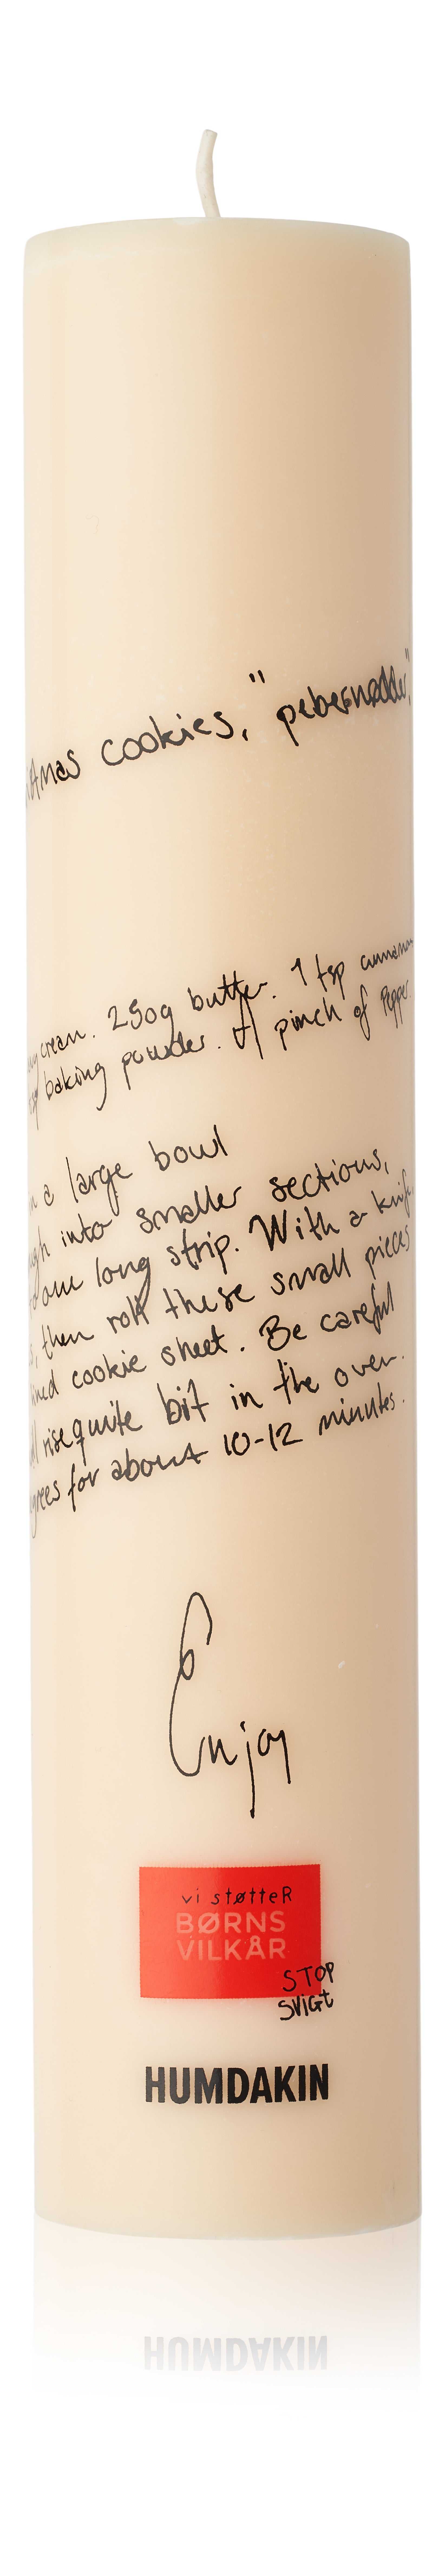 cookies, "pebernødder"
cream. 250g butter. 1 tsp cinnamon
baking powder. 1 pinch of Pepper.
a large bowl
into smaller sections,
one long strip. With a knife
then roll these small pieces
lined cookie sheet. Be careful
rise quite bit in the oven.
for about 10-12 minutes.
Enjoy
vi støtteR
BØRNS
VILKÅR
STOP
SVIGt
HUMDAKIN